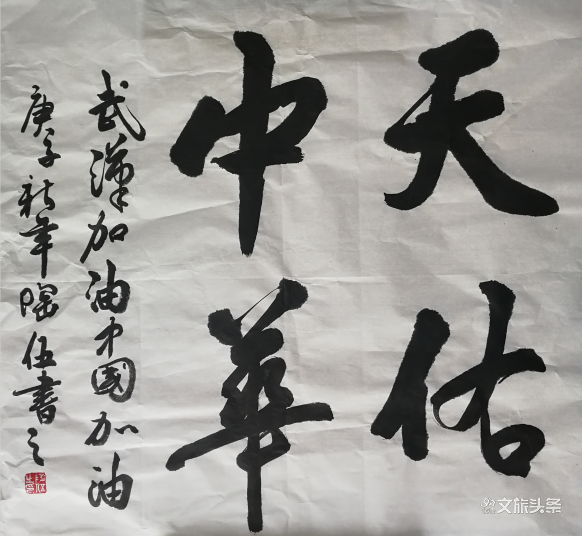 天佑
中華
武漢加油中國加油
庚子新年陶伍書之
文旅头条